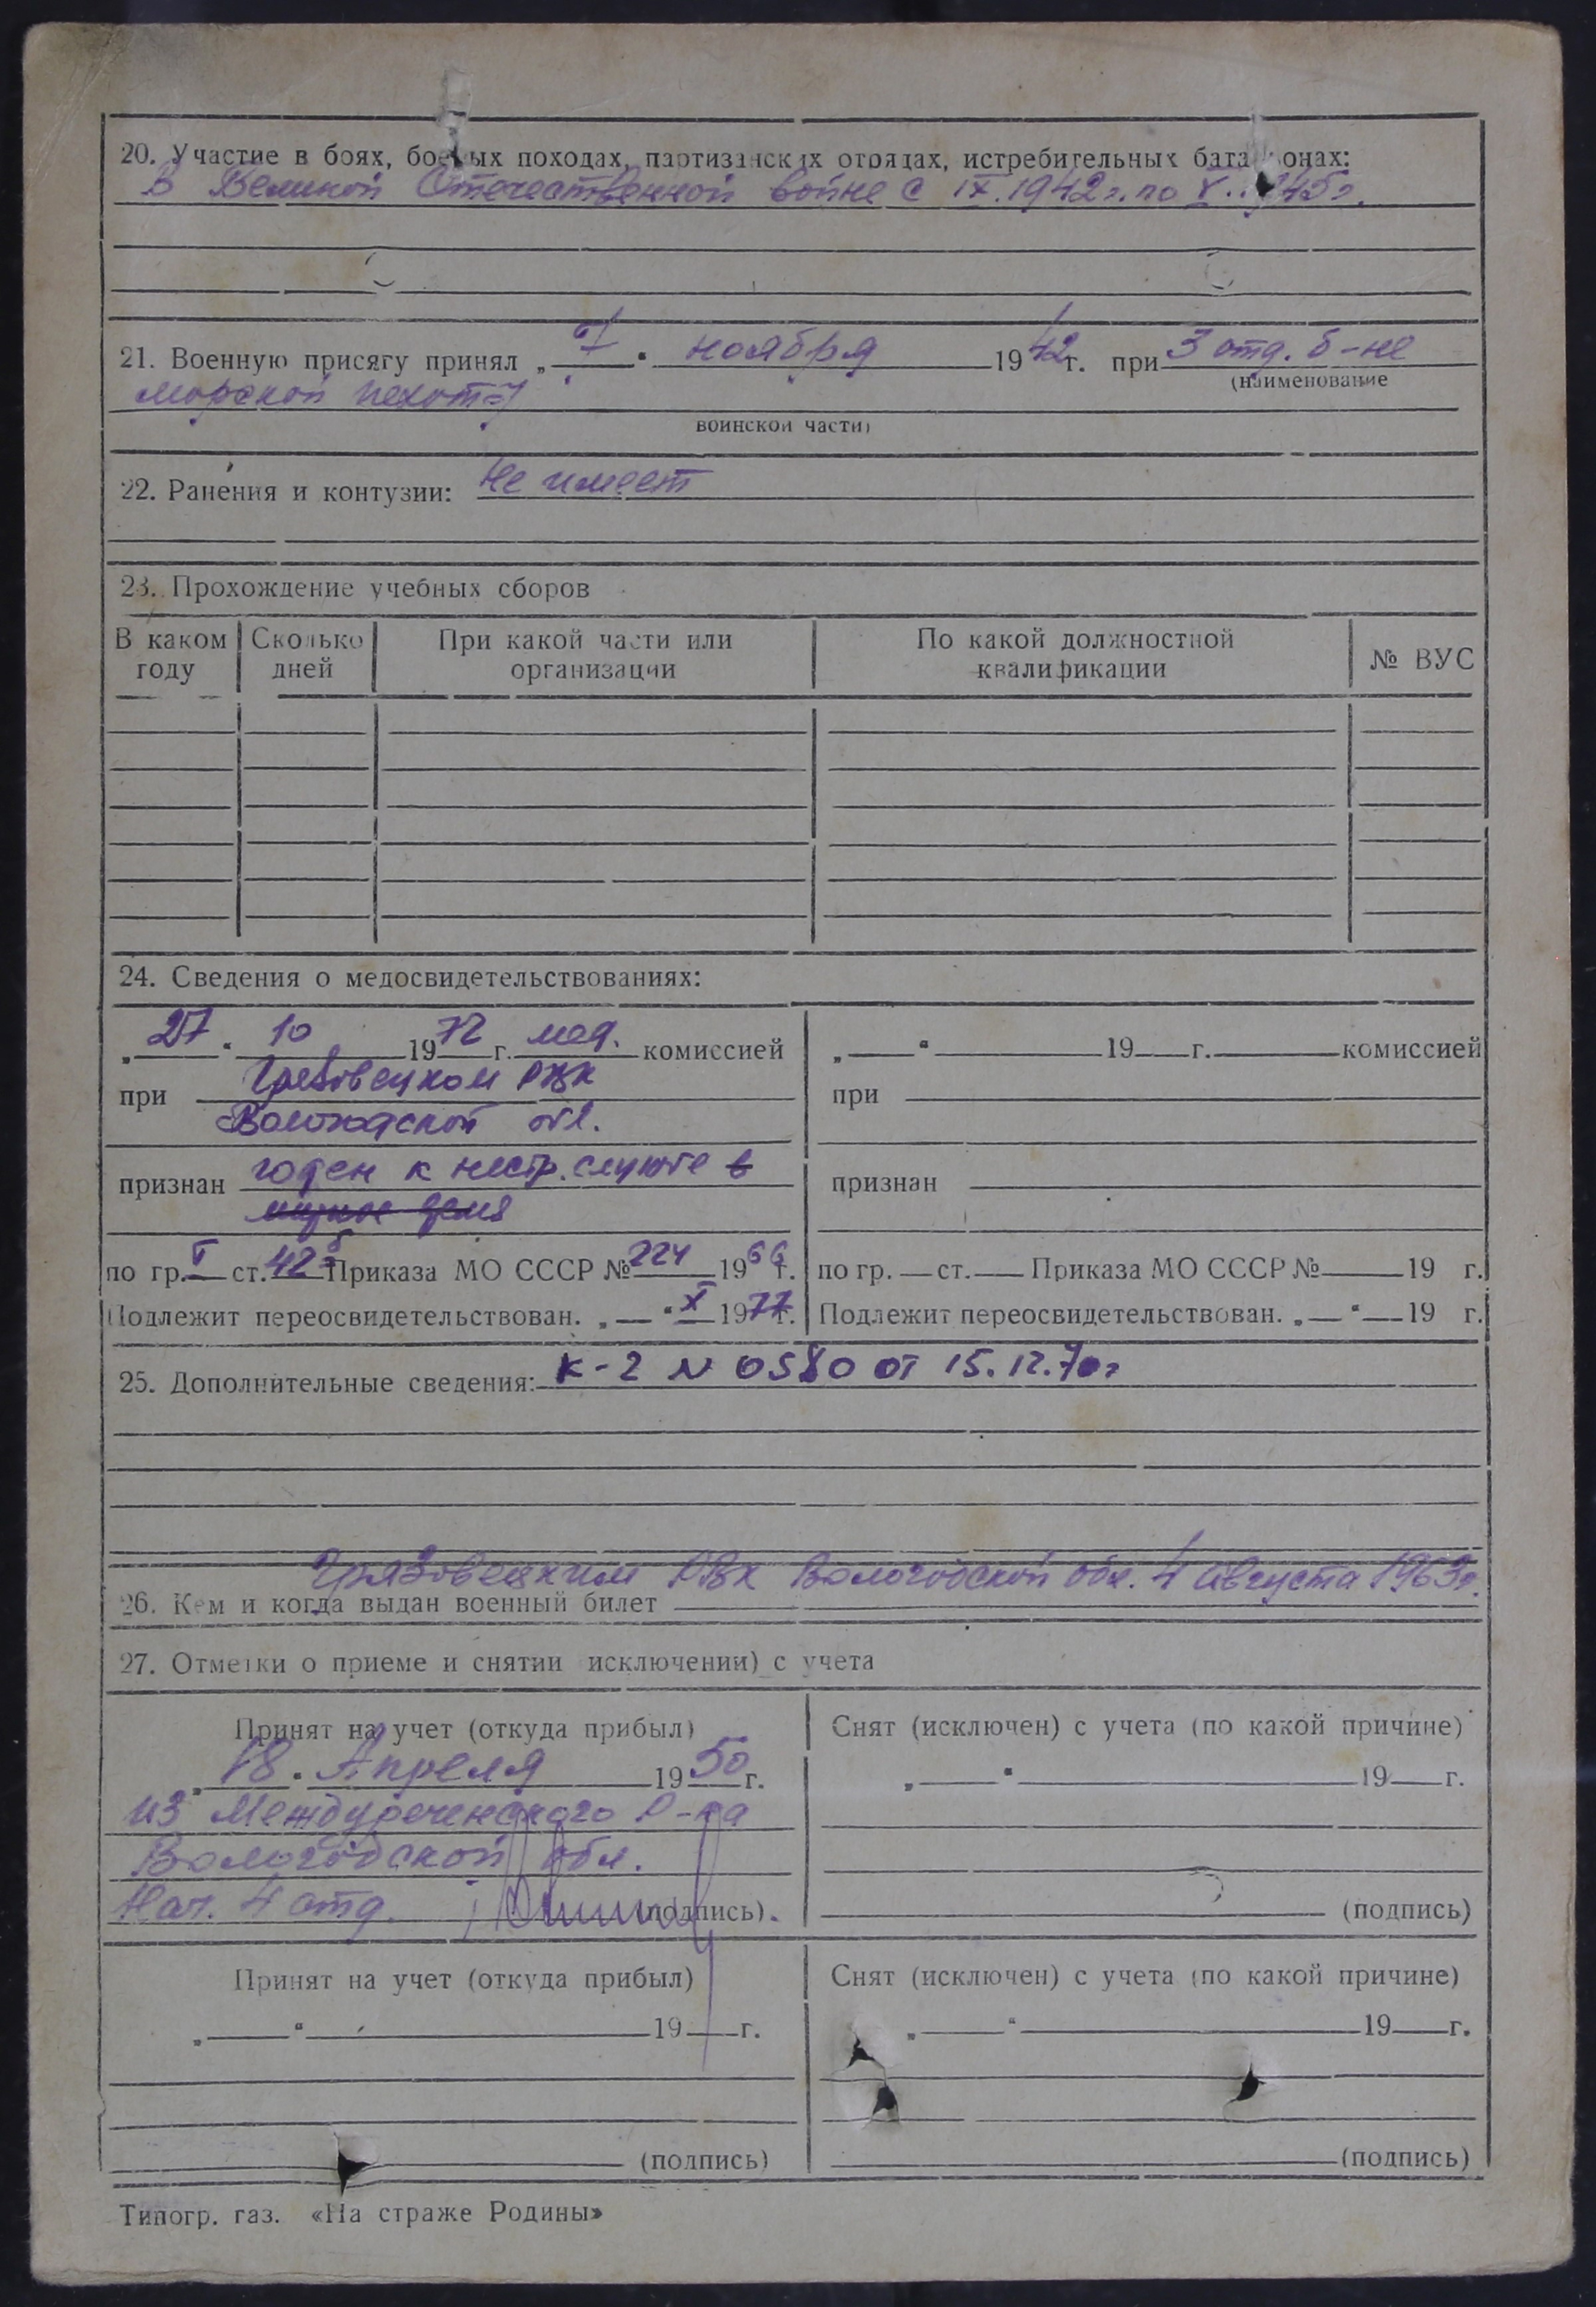 20. Участие в боях, боевых походах, партизанских отрядах, истребительных батальонах:
В Великой Отечественной войне с IX.1942г. по V.1945г.
21. Военную присягу принял „7“ ноября 1942г. при 3 отд. б-не
(наименование
морской пехоты
воинской части)
22. Ранения и контузии: Не имеет
23. Прохождение учебных сборов
В каком году Сколько дней При какой части или организации По какой должностной квалификации № ВУС
24. Сведения о медосвидетельствованиях:
„27“ 10 1972 г. мед. комиссией
при Грязовецком РВК
Вологодской обл.
признан годен к нестр. службе в
мирное время
по гр. I ст. 42б Приказа МО СССР № 224 1966г.
Подлежит переосвидетельствован. „ “ X 1977г.
„ “ 19 г. комиссией
при
признан
по гр. ст. Приказа МО СССР № 19 г.
Подлежит переосвидетельствован. „ “ 19 г.
25. Дополнительные сведения: К-2 N 0580 от 15.12.70г
Грязовецким РВК Вологодской обл. 4 августа 1963г.
26. Кем и когда выдан военный билет
27. Отметки о приеме и снятии исключении) с учета
Принят на учет (откуда прибыл)
„18“ Апреля 1950г.
из Междуреченского Р-на
Вологодской обл.
Нач. 4 отд. (подпись).
Снят (исключен) с учета (по какой причине)
„ “ 19 г.
(подпись)
Принят на учет (откуда прибыл)
„ “ 19 г.
(подпись)
Снят (исключен) с учета (по какой причине)
„ “ 19 г.
(подпись)
Типогр. газ. «На страже Родины»